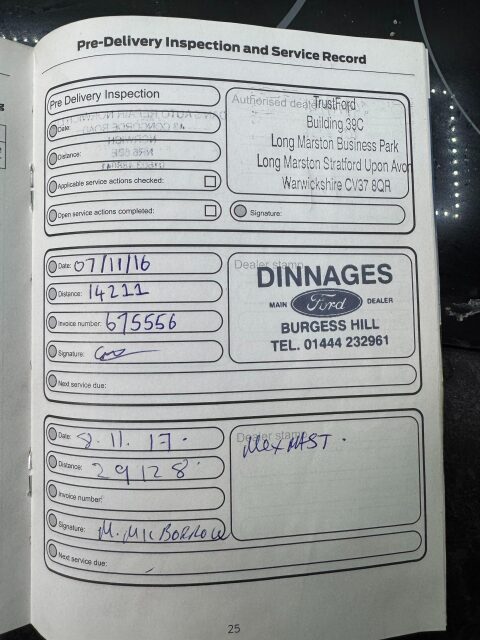 Pre-Delivery Inspection and Service Record
Pre Delivery Inspection
Date:
Distance:
Applicable service actions checked:
Open service actions completed:
Authorised dealer
TrustFord
Building 39C
Long Marston Business Park
Long Marston Stratford Upon Avon
Warwickshire CV37 8QR
Signature:
Date: 07/11/16
Distance: 14211
Invoice number: 675556
Signature:
Next service due:
Dealer stamp
DINNAGES
MAIN Ford DEALER
BURGESS HILL
TEL. 01444 232961
Date: 8.11.17.
Distance: 29128
Invoice number:
Signature: M. MCBORROW
Next service due:
Dealer stamp
25